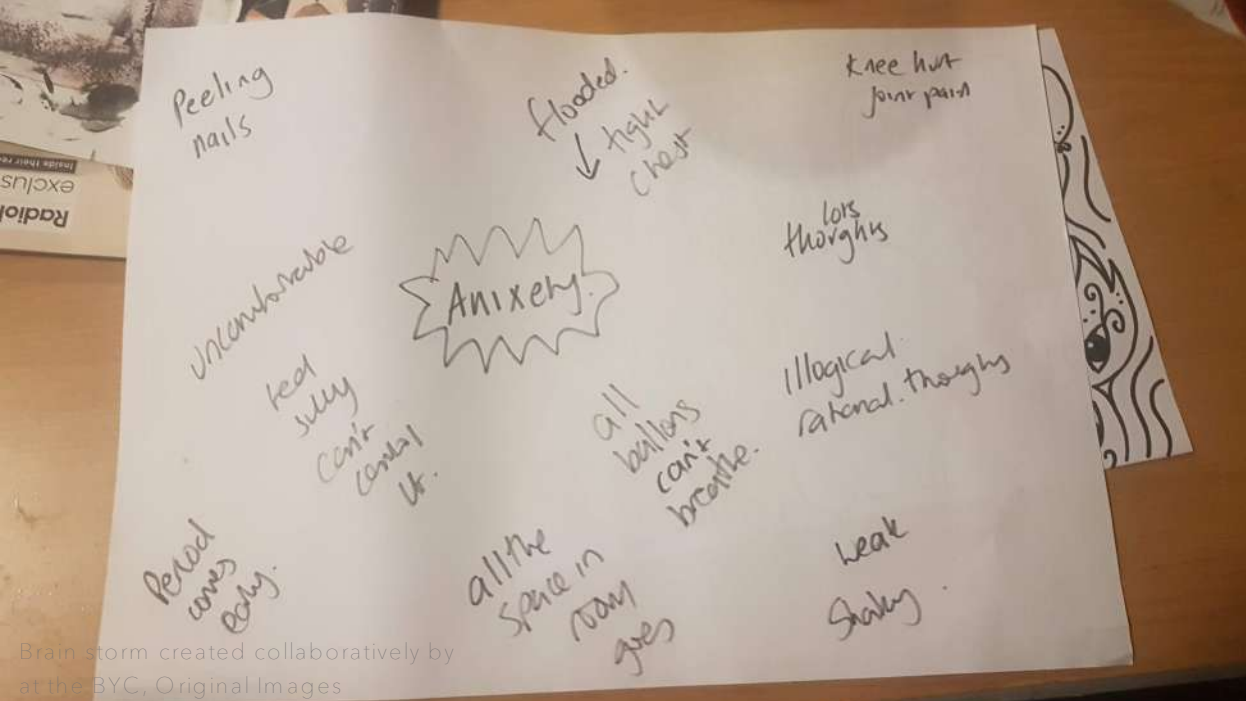 Peeling
nails
flooded.
tight
chest
Knee hurt
joint pain
lots
thorghts
uncomfortable
Anixety.
feel
silly
can't
control
it.
all
ballons
can't
breathe.
illogical
rational. thoughts
Period
comes
early.
all the
space in
room
goes
weak
shaky.
Inside their re
exclus
Radio
Brain storm created collaboratively by
at the BYC, Original Images